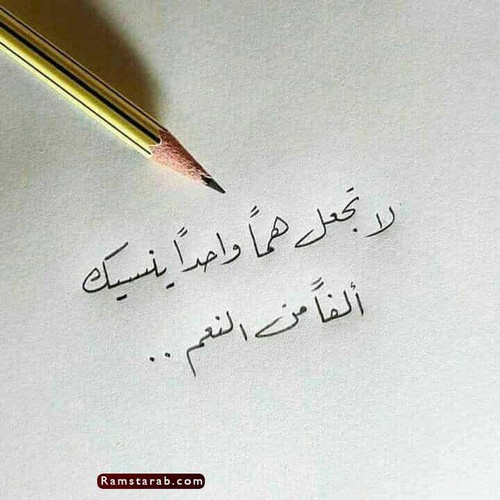 لا تجعل هماً واحداً ينسيك
ألفاً من النعم ..
Ramstarab.com